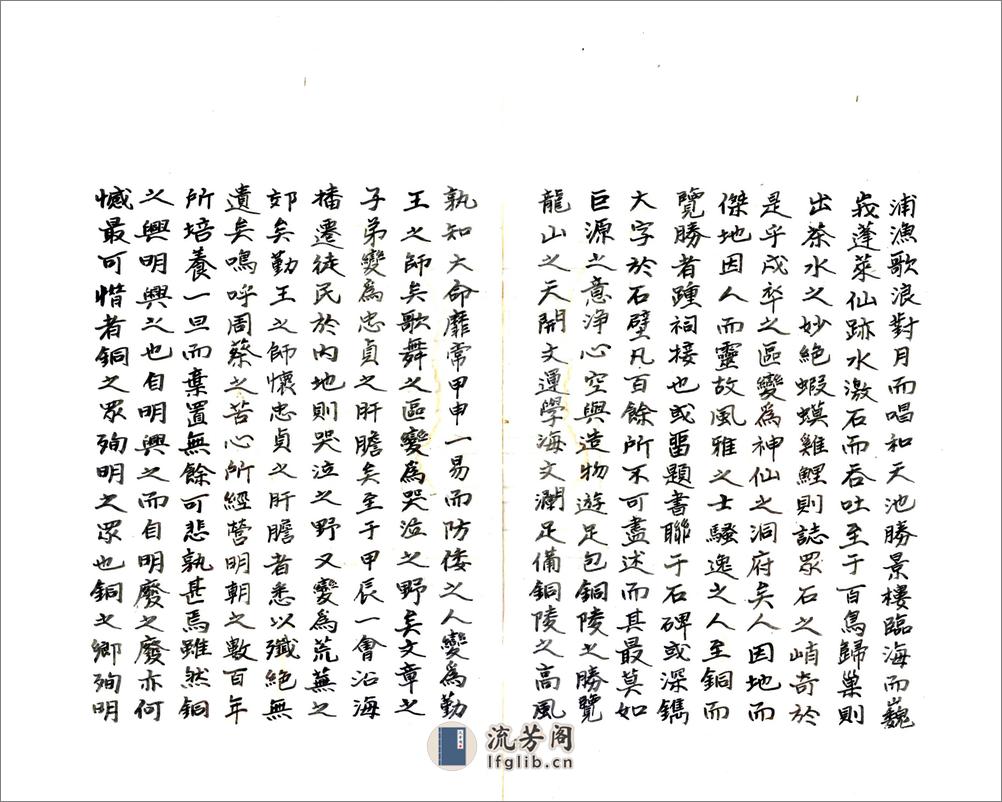 浦漁歌浪對月而唱和天池勝景樓臨海而巍
峩蓬萊仙跡水激石而吞吐至于百鳥歸巢則
出茶水之妙絕蝦蟆雞鯉則誌眾石之峭奇於
是乎戍卒之區變爲神仙之洞府矣人因地而
傑地因人而靈故風雅之士騷逸之人至銅而
覽勝者踵祠接也或留題書聯于石碑或深鐫
大字於石壁凡百餘所不可盡述而其最莫如
巨源之意浄心空與造物遊足包銅陵之勝覽
龍山之天開文運學海文瀾足備銅陵之高風
孰知大命靡常甲申一易而防倭之人變爲勤
王之師矣歌舞之區變爲哭泣之野矣文章之
子弟變爲忠貞之肝膽矣至于甲辰一會沿海
播遷徙民於內地則哭泣之野又變爲荒蕪之
郊矣勤王之師懷忠貞之肝膽者悉以殲絕無
遺矣嗚呼周蔡之苦心所經營明朝之數百年
所培養一旦而棄置無餘可悲孰甚焉雖然銅
之興明興之也自明興之而自明廢之廢亦何
憾最可惜者銅之眾殉明之眾也銅之鄉殉明
流芳阁
lfglib.cn